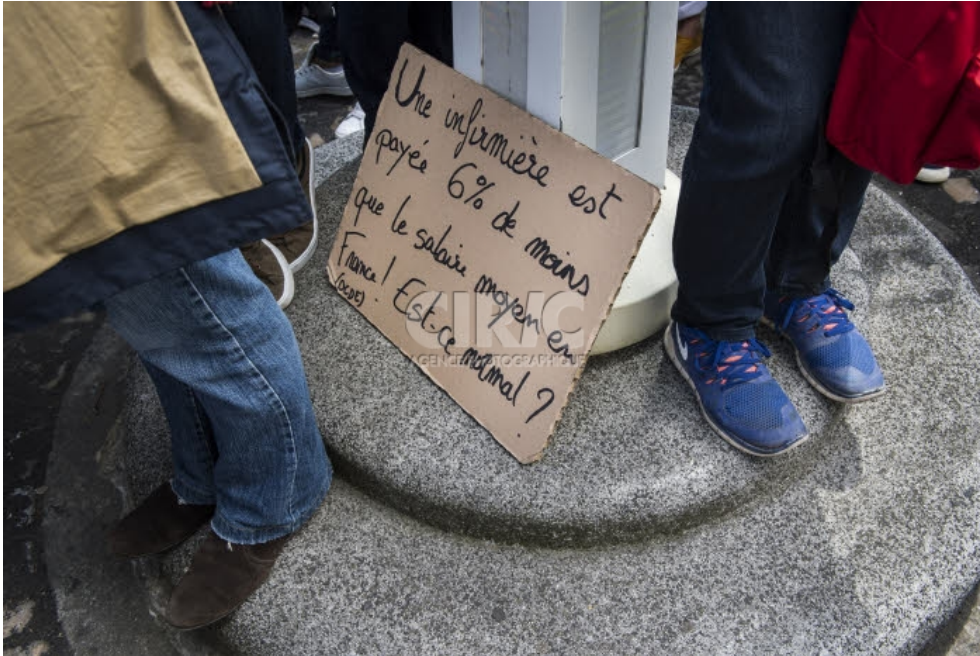 Une infirmière est
payée 6% de moins
que le salaire moyen en
France! Est-ce normal?
(OCDE)
CIRIC
AGENCE PHOTOGRAPHIQUE